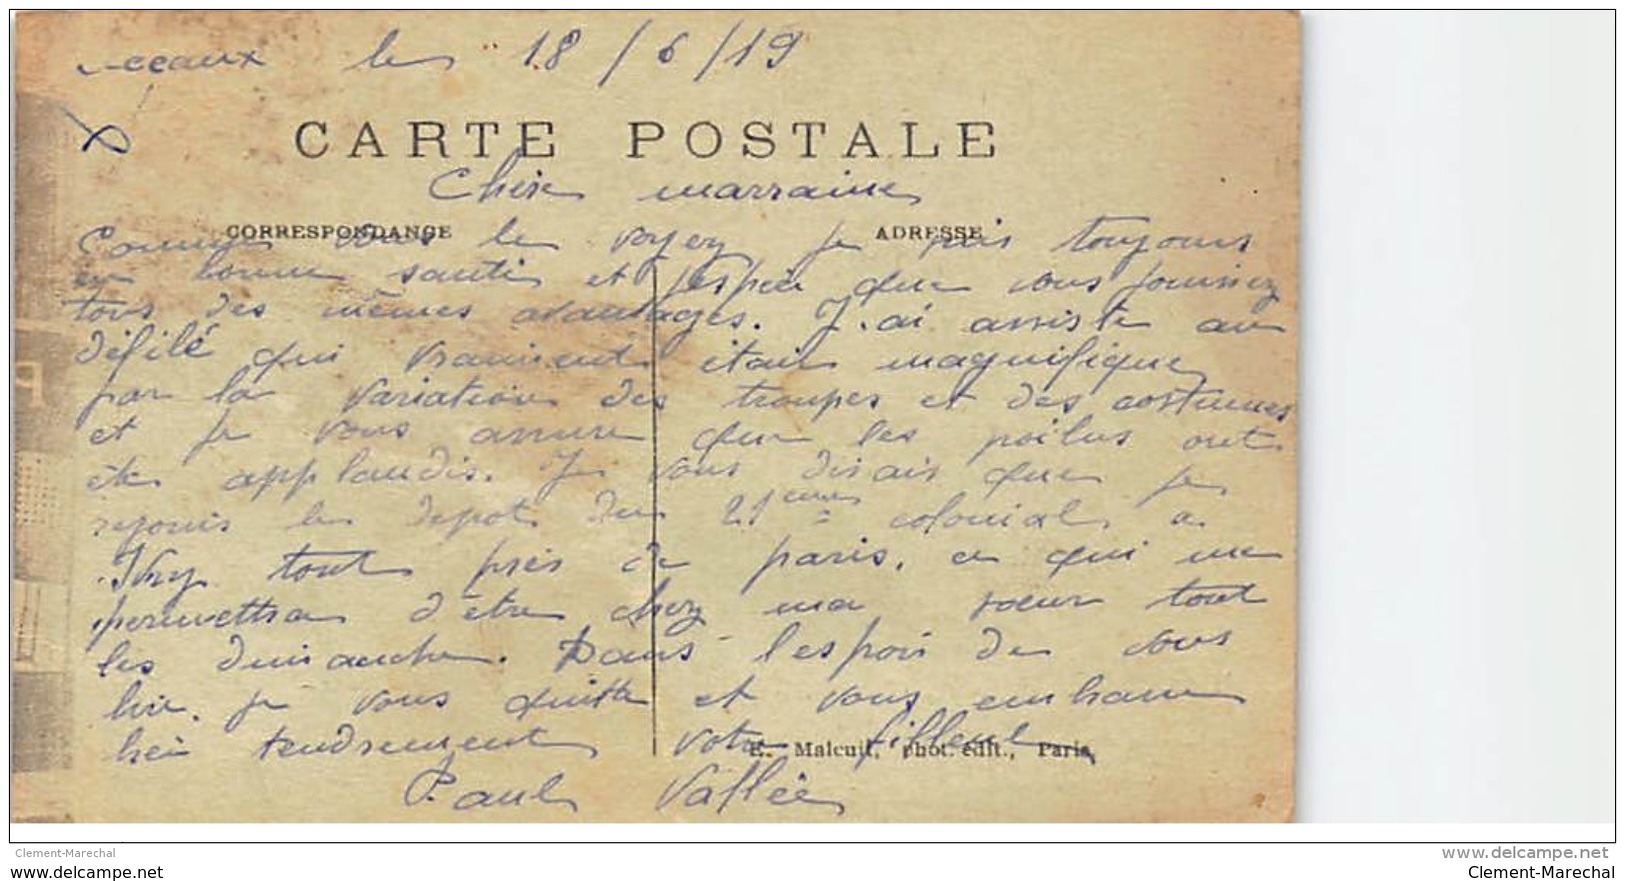 Sceaux le 18/6/19
CARTE POSTALE
Chère marraine
CORRESPONDANCE ADRESSE
Comme vous le voyez je suis toujours
en bonne santé et j'espère que vous jouissiez
tous des mêmes avantages. J'ai assisté au
défilé qui vraiment était magnifique
par la variation des troupes et des costumes
et je vous assure que les poilus ont
été applaudis. Je vous disais que je
rejouis le depot du 21eme colonial a
Ivry tout près de paris, ce qui me
permettra d'être chez ma soeur tout
les dimanche. Dans l'espoir de vous
lire. je vous quitte et vous embrasse
bien tendrement votre filleul
E. Malcuit, phot. édit., Paris
Paul Vallée
Clement-Marechal
www.delcampe.net
www.delcampe.net
Clement-Marechal